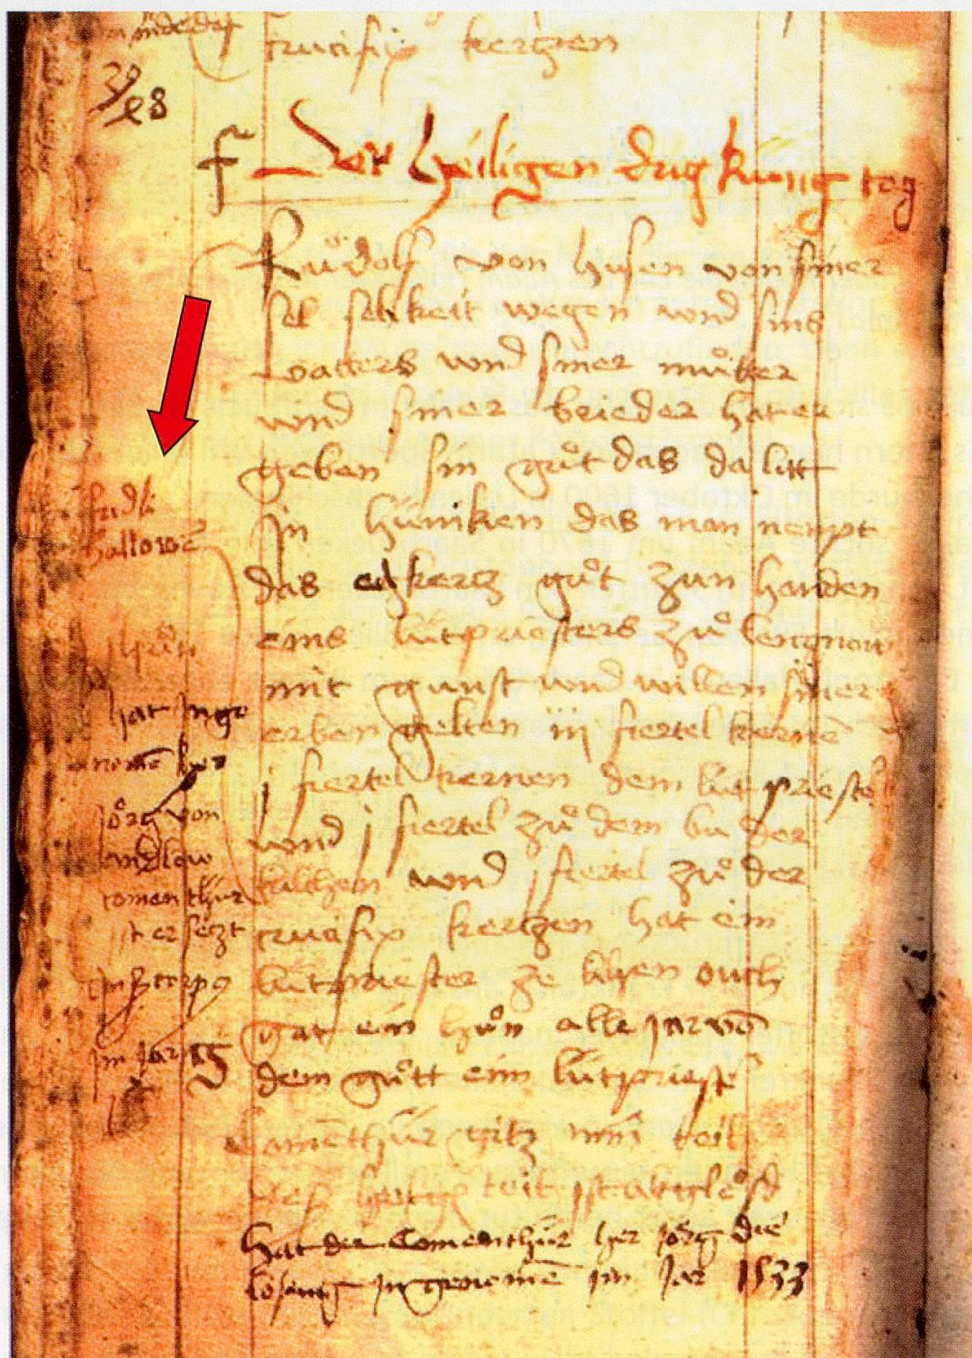 crucifix kertzen
f Der heiligen drig küng tag
Ruͦdolf von husen von siner
sel selikeit wegen vnd sins
vatters vnd siner muͦtter
vnd siner brieder hat er
geben sin guͦt das da litt
Jn hüniken das man nempt
das kertz guͦt zun handen
eins lütpriesters zuͦ lengnow
mit gunst vnd willen siner
erben gelten iij fiertel kernē
j fiertel kernen dem lütpriester
vnd j fiertel zuͦ dem bu der
kilchen vnd j fiertel zuͦ der
crucifix kertzen hat ein
lütpriester ze lihen ouch
gat ein huͦn alle Jar vō
dem guͦtt eim lütpriester
Comēthür teil
teil ist abgeloͤsd
Hat der Comenthür her Joͤrg die
losung Jngenomē im Jar 1533
fridli
hallowē
hat Jnge
nomē her
Joͤrg von
comenthür
er setzt
Jm Jar